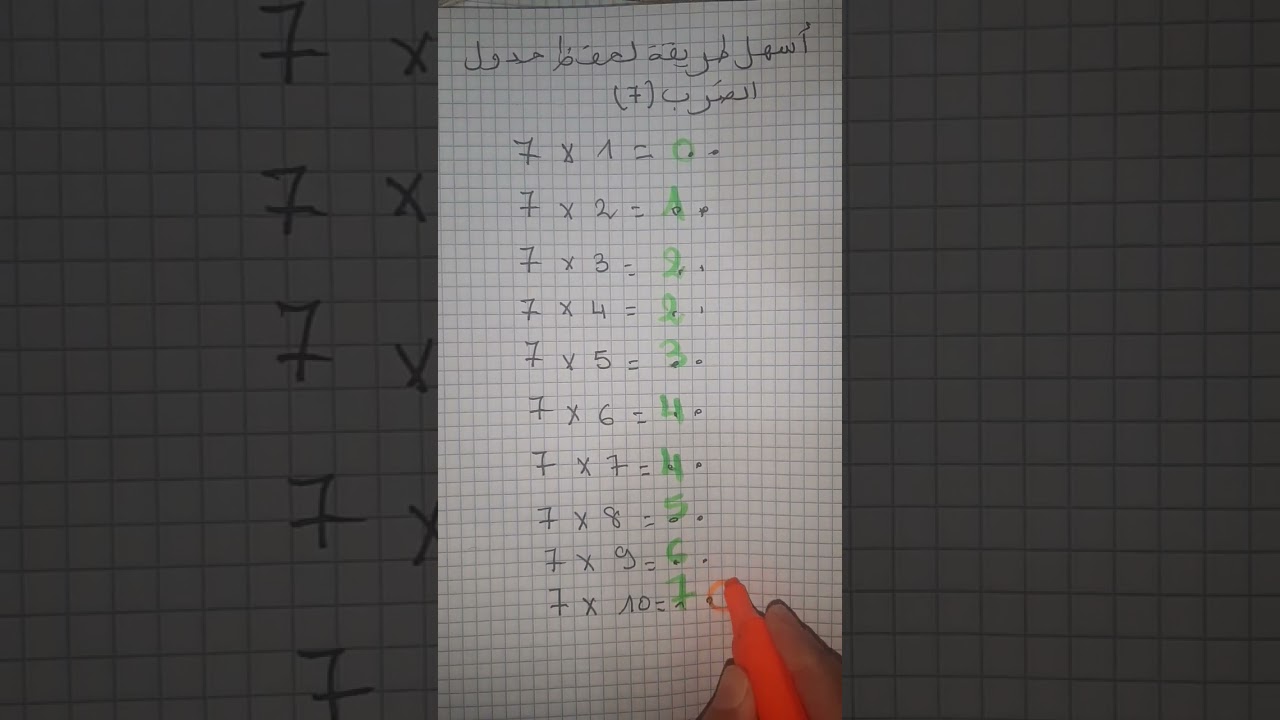 أسهل طريقة لحفظ جدول
الضرب (7)
7 x 1 = 0
7 x 2 = 1
7 x 3 = 2
7 x 4 = 2
7 x 5 = 3
7 x 6 = 4
7 x 7 = 4
7 x 8 = 5
7 x 9 = 6
7 x 10 = 7